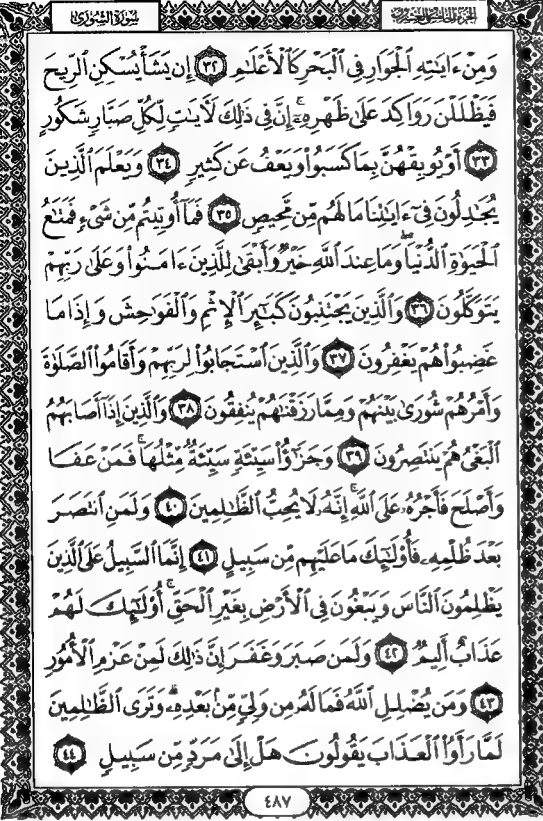 سورة الشورى الجزء الخامس والعشرون
وَمِنْ ءَايَٰتِهِ ٱلْجَوَارِ فِى ٱلْبَحْرِ كَٱلْأَعْلَٰمِ ٣٢ إِن يَشَأْ يُسْكِنِ ٱلرِّيحَ
فَيَظْلَلْنَ رَوَاكِدَ عَلَىٰ ظَهْرِهِۦٓ ۚ إِنَّ فِى ذَٰلِكَ لَءَايَٰتٍ لِّكُلِّ صَبَّارٍ شَكُورٍ
٣٣ أَوْ يُوبِقْهُنَّ بِمَا كَسَبُوا۟ وَيَعْفُ عَن كَثِيرٍ ٣٤ وَيَعْلَمَ ٱلَّذِينَ
يُجَٰدِلُونَ فِىٓ ءَايَٰتِنَا مَا لَهُم مِّن مَّحِيصٍ ٣٥ فَمَآ أُوتِيتُم مِّن شَىْءٍ فَمَتَٰعُ
ٱلْحَيَوٰةِ ٱلدُّنْيَا ۖ وَمَا عِندَ ٱللَّهِ خَيْرٌ وَأَبْقَىٰ لِلَّذِينَ ءَامَنُوا۟ وَعَلَىٰ رَبِّهِمْ
يَتَوَكَّلُونَ ٣٦ وَٱلَّذِينَ يَجْتَنِبُونَ كَبَٰٓئِرَ ٱلْإِثْمِ وَٱلْفَوَٰحِشَ وَإِذَا مَا
غَضِبُوا۟ هُمْ يَغْفِرُونَ ٣٧ وَٱلَّذِينَ ٱسْتَجَابُوا۟ لِرَبِّهِمْ وَأَقَامُوا۟ ٱلصَّلَوٰةَ
وَأَمْرُهُمْ شُورَىٰ بَيْنَهُمْ وَمِمَّا رَزَقْنَٰهُمْ يُنفِقُونَ ٣٨ وَٱلَّذِينَ إِذَآ أَصَابَهُمُ
ٱلْبَغْىُ هُمْ يَنتَصِرُونَ ٣٩ وَجَزَٰٓؤُا۟ سَيِّئَةٍ سَيِّئَةٌ مِّثْلُهَا ۖ فَمَنْ عَفَا
وَأَصْلَحَ فَأَجْرُهُۥ عَلَى ٱللَّهِ ۚ إِنَّهُۥ لَا يُحِبُّ ٱلظَّٰلِمِينَ ٤٠ وَلَمَنِ ٱنتَصَرَ
بَعْدَ ظُلْمِهِۦ فَأُو۟لَٰٓئِكَ مَا عَلَيْهِم مِّن سَبِيلٍ ٤١ إِنَّمَا ٱلسَّبِيلُ عَلَى ٱلَّذِينَ
يَظْلِمُونَ ٱلنَّاسَ وَيَبْغُونَ فِى ٱلْأَرْضِ بِغَيْرِ ٱلْحَقِّ ۚ أُو۟لَٰٓئِكَ لَهُمْ
عَذَابٌ أَلِيمٌ ٤٢ وَلَمَن صَبَرَ وَغَفَرَ إِنَّ ذَٰلِكَ لَمِنْ عَزْمِ ٱلْأُمُورِ
٤٣ وَمَن يُضْلِلِ ٱللَّهُ فَمَا لَهُۥ مِن وَلِىٍّ مِّنۢ بَعْدِهِۦ ۗ وَتَرَى ٱلظَّٰلِمِينَ
لَمَّا رَأَوُا۟ ٱلْعَذَابَ يَقُولُونَ هَلْ إِلَىٰ مَرَدٍّ مِّن سَبِيلٍ ٤٤
٤٨٧